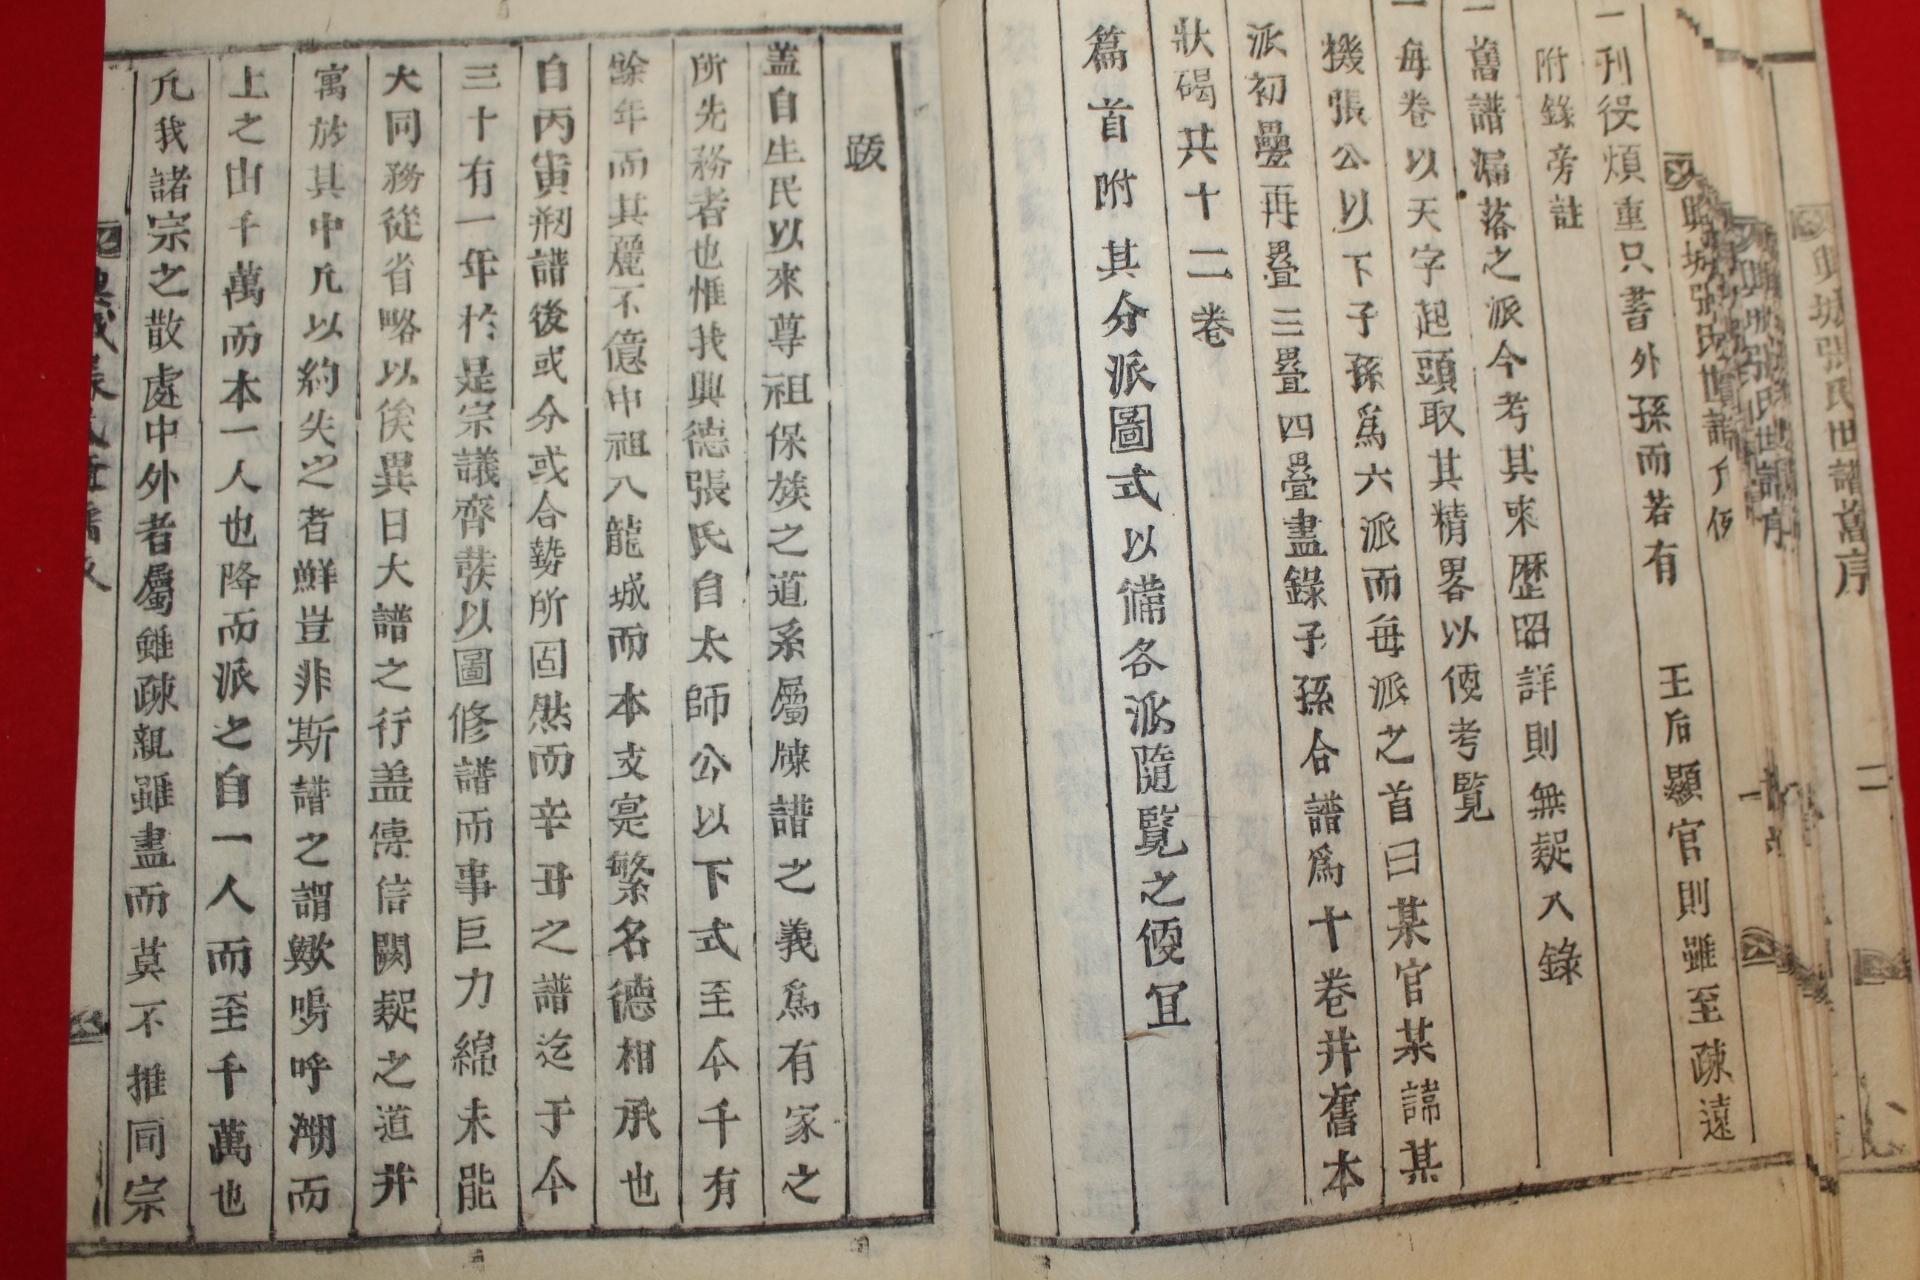 興城張氏世譜舊序
二
興城張氏世譜凡例
王后顯官則雖至疎遠
一刊役煩重只書外孫而若有
附錄旁註
一舊譜漏落之派今考其來歷昭詳則無疑入錄
一每卷以天字起頭取其精畧以便考覽
機張公以下子孫爲六派而每派之首曰某官某諱某
派初疊再疊三疊四疊盡錄子孫合譜爲十卷幷舊本
狀碣共十二卷
篇首附其分派圖式以備各派隨覽之便宜
跋
盖自生民以來尊祖保族之道系屬牒譜之義爲有家之
所先務者也惟我興德張氏自太師公以下式至今千有
餘年而其麗不億中祖八龍城而本支寔繁名德相承也
自丙寅刱譜後或分或合勢所固然而辛丑之譜迄于今
三十有一年於是宗議齊發以圖修譜而事巨力綿未能
大同務從省略以俟異日大譜之行盖傳信闕疑之道幷
寓於其中凡以約失之者鮮豈非斯譜之謂歟嗚呼溯而
上之由千萬而本一人也降而派之自一人而至千萬也
凡我諸宗之散處中外者屬雖疎親雖盡而莫不推同宗